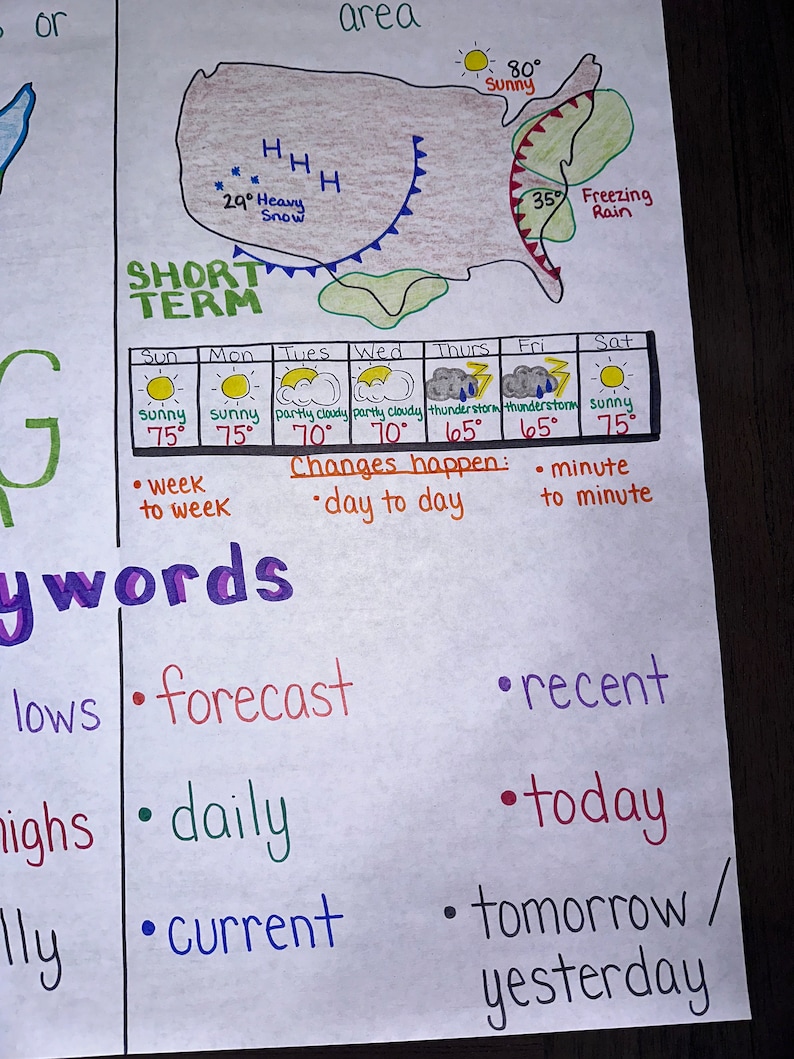 or
area
80°
Sunny
H H H
29° Heavy
Snow
35°
Freezing
Rain
SHORT
TERM
Sun Mon Tues Wed Thurs Fri Sat
sunny sunny partly cloudy partly cloudy thunderstorm thunderstorm sunny
75° 75° 70° 70° 65° 65° 75°
Changes happen:
• week
to week
• day to day
• minute
to minute
G
ywords
lows
highs
lly
• forecast
• recent
• daily
• today
• current
• tomorrow /
yesterday